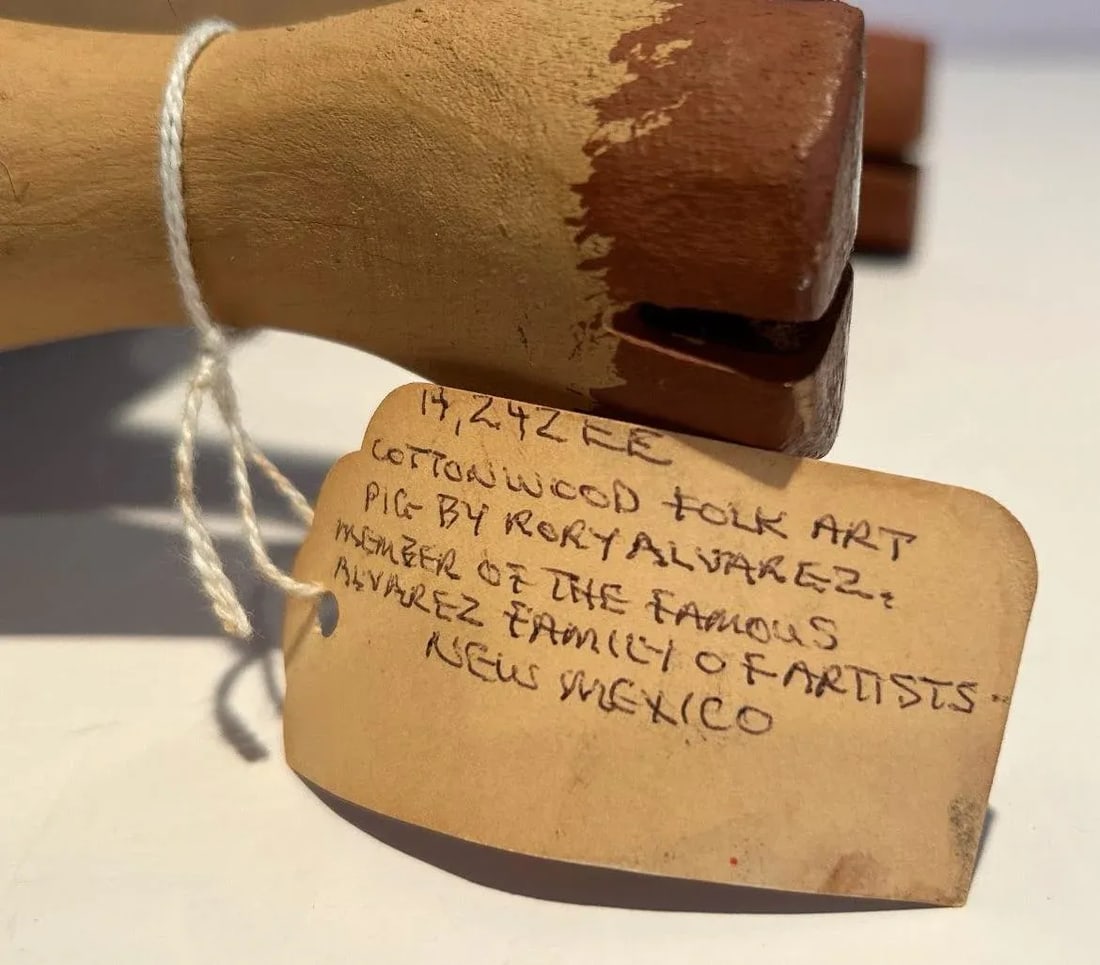 14,242 EE
COTTONWOOD FOLK ART
PIG BY RORY ALVAREZ.
MEMBER OF THE FAMOUS
ALVAREZ FAMILY OF ARTISTS -
NEW MEXICO